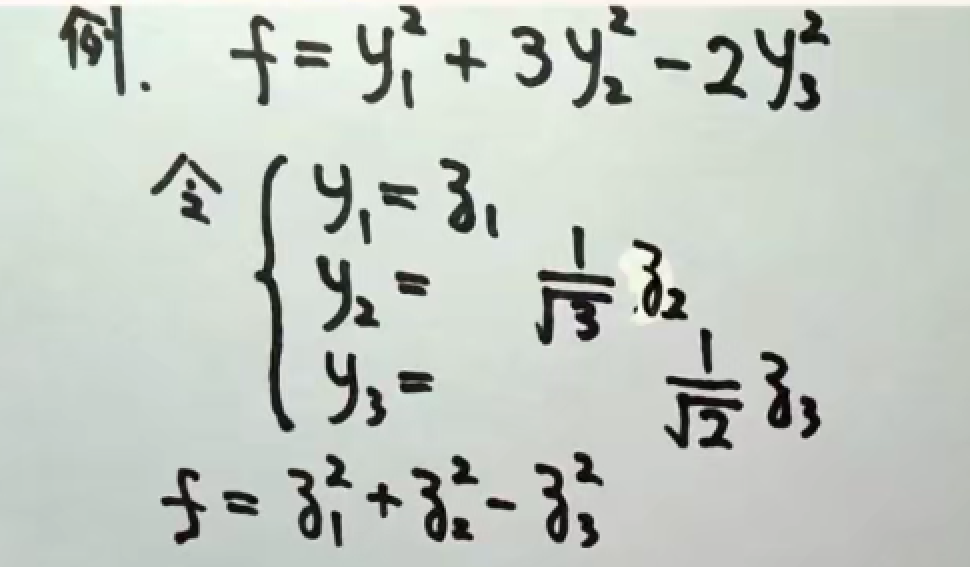 例. f = y₁² + 3y₂² - 2y₃²
令 { y₁ = z₁
y₂ = 1/√3 z₂
y₃ = 1/√2 z₃
f = z₁² + z₂² - z₃²